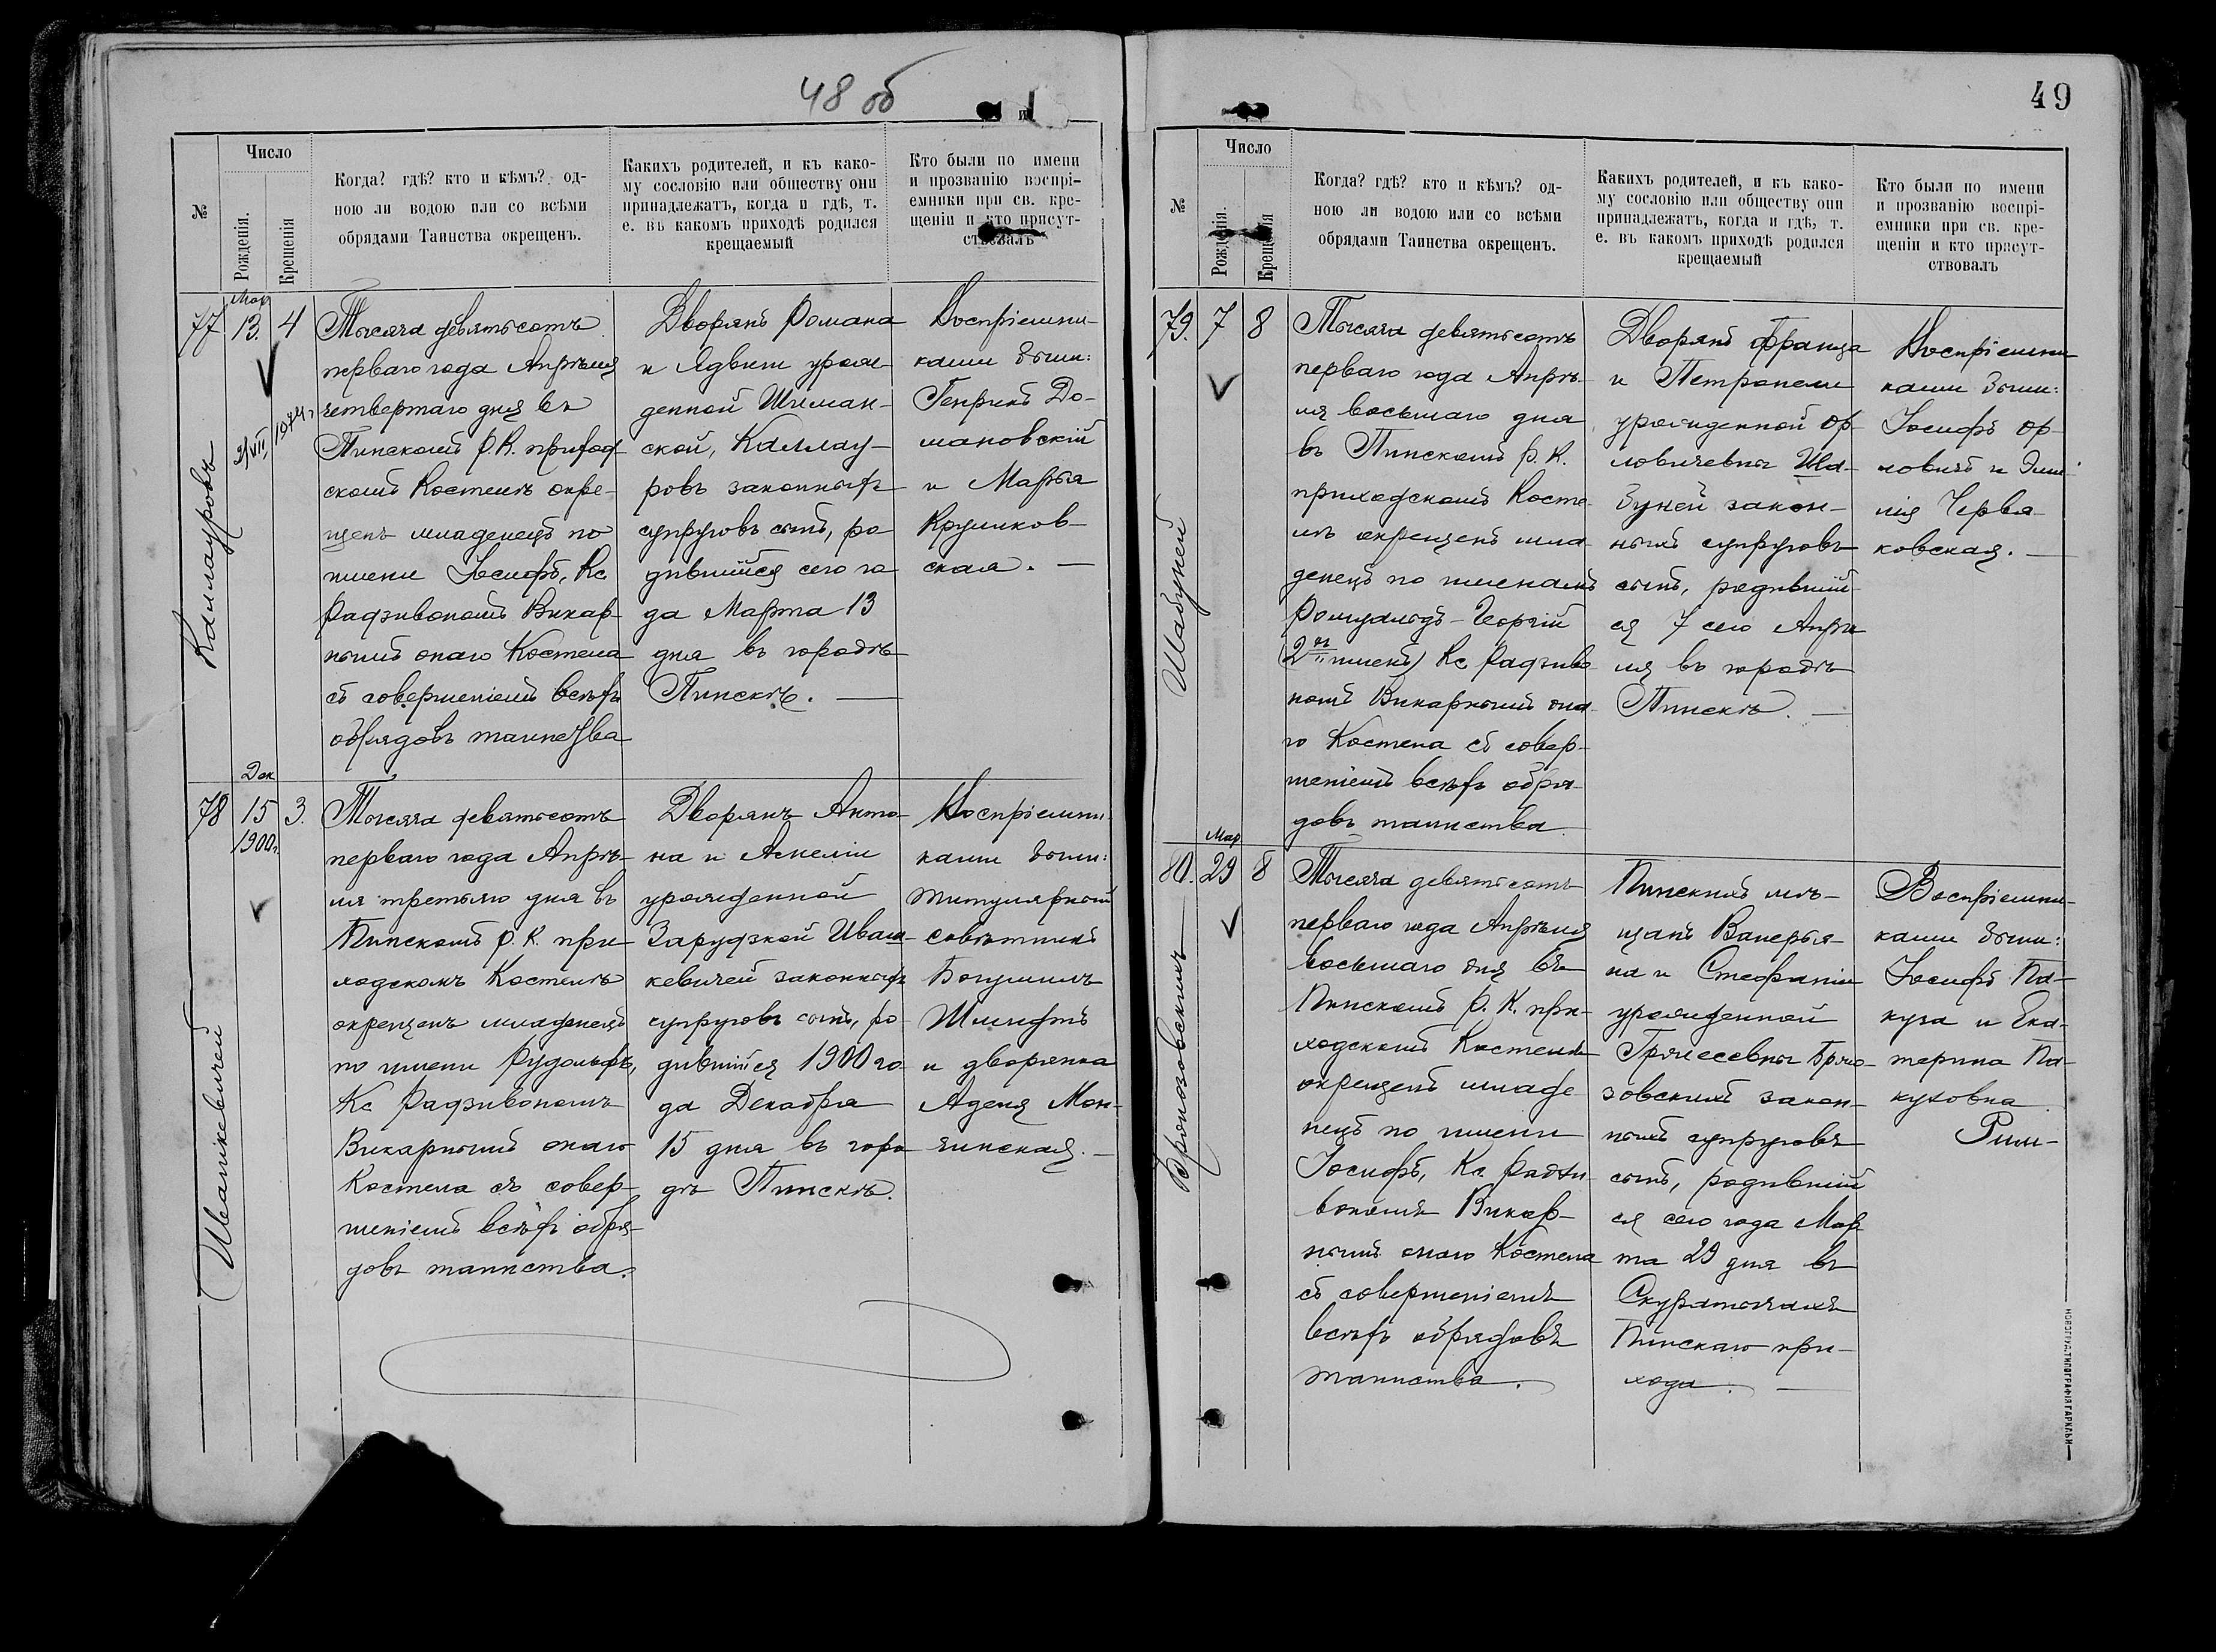 48 об
№
Число
Рожденія.
Крещенія
Когда? гдѣ? кто и кѣмъ? од-
ною ли водою или со всѣми
обрядами Таинства окрещенъ.
Какихъ родителей, и къ како-
му сословію или обществу они
принадлежатъ, когда и гдѣ, т.
е. въ какомъ приходѣ родился
крещаемый
Кто были по имени
и прозванію воспрі-
емники при св. кре-
щеніи и кто присут-
ствовалъ
77
Мар
13.
4
Каллауровъ
Тысяча девятьсотъ
перваго года Апрѣля
четвертаго дня въ
Пинскомъ Р. К. приход
скомъ Костелѣ окре-
щенъ младенецъ по
имени Іосифъ, Кс
Радзивономъ Викар-
нымъ онаго Костела
съ совершеніемъ всѣхъ
обрядовъ таинства
Дворянъ Романа
и Ядвиги урож-
денной
ской, Каллау-
ровъ законныхъ
супруговъ сынъ, ро
дившійся сего го
да Марта 13
дня въ городѣ
Пинскѣ. —
Воспріемни-
ками были:
Генрихъ До-
мановскій
и Марья
Крумков-
ская. —
78
Дек
15
1900г.
3.
Ивашкевичей
Тысяча девятьсотъ
перваго года Апрѣ-
ля третьяго дня въ
Пинскомъ Р. К. при-
ходскомъ Костелѣ
окрещенъ младенецъ
по имени Рудольфъ,
Кс Радзивономъ
Викарнымъ онаго
Костела съ совер-
шеніемъ всѣхъ обря-
довъ таинства.
Дворянъ Анто-
на и Амеліи
урожденной
Зарудзкой Иваш-
кевичей законныхъ
супруговъ сынъ, ро-
дившійся 1900 го-
да Декабря
15 дня въ горо
дѣ Пинскѣ.
Воспріемни-
ками были:
титулярный
совѣтникъ
Богумилъ
и дворянка
Аделя Мон-
чинская. —
49
№
Число
Рожденія.
Крещенія
Когда? гдѣ? кто и кѣмъ? од-
ною ли водою или со всѣми
обрядами Таинства окрещенъ.
Какихъ родителей, и къ како-
му сословію или обществу они
принадлежатъ, когда и гдѣ, т.
е. въ какомъ приходѣ родился
крещаемый
Кто были по имени
и прозванію воспрі-
емники при св. кре-
щеніи и кто присут-
ствовалъ
79.
7
8
Шабуней
Тысяча девятьсотъ
перваго года Апрѣ-
ля восьмаго дня
въ Пинскомъ Р. К.
приходскомъ Косте-
лѣ окрещенъ мла-
денецъ по именамъ
Ромуальдъ-Георгій
(2хъ именъ) Кс Радзиво-
номъ Викарнымъ она-
го Костела съ совер-
шеніемъ всѣхъ обря-
довъ таинства.
Дворянъ Франца
и Петронели
урожденной Ор-
ловичевны Ша-
буней закон-
ныхъ супруговъ
сынъ, родившій-
ся 7 сего Апрѣ
ля въ городѣ
Пинскѣ. —
Воспріемни
ками были:
Іосифъ Ор-
ловичъ и Эми-
лія Червя-
ковская. —
80.
Мар
29
8
Тысяча девятьсотъ
перваго года Апрѣля
восьмаго дня въ
Пинскомъ Р. К. при-
ходскомъ Костелѣ
окрещенъ младе
нецъ по имени
Іосифъ, Кс. Радзи-
вономъ Викар-
нымъ онаго Костела
съ совершеніемъ
всѣхъ обрядовъ
таинства.
Пинскихъ мѣ-
щанъ Валерья-
на и Стефаніи
урожденной
зовскихъ закон-
ныхъ супруговъ
сынъ, родившій
ся сего года Мар
та 29 дня въ
Пинскаго при-
хода. —
Воспріемни-
ками были:
Іосифъ Па-
куза и Ека-
терина Па-
НОВОГРУД. ТИПОГРАФІЯ ГАРКАВИ